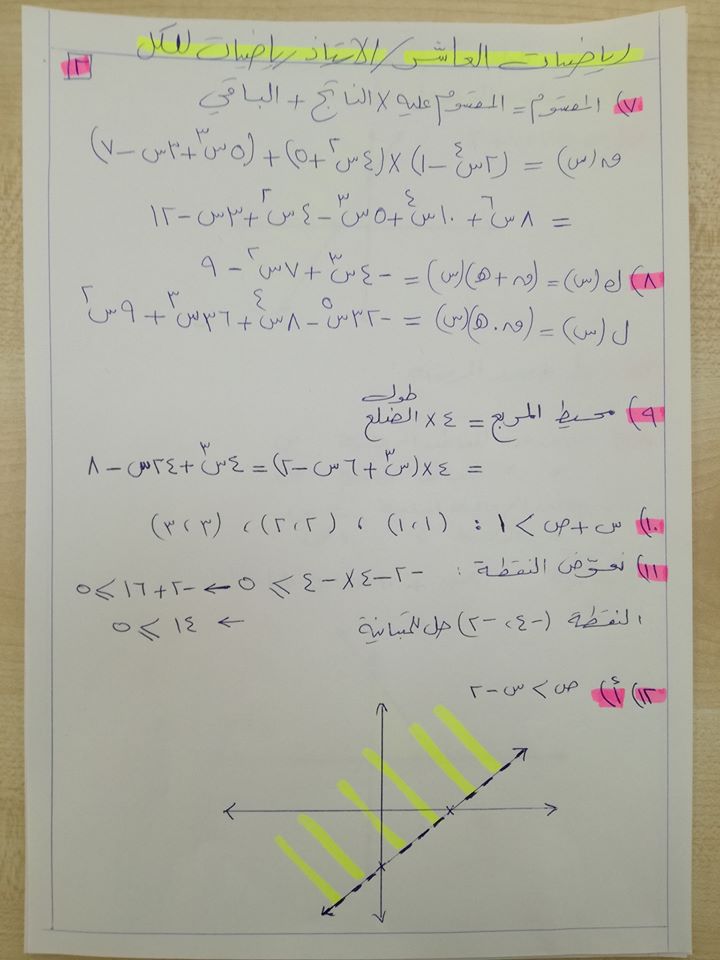 رياضيات العاشر / الأستاذ رياضيات للكل
١٢
٧) المقسوم = المقسوم عليه × الناتج + الباقي
ق(س) = (٢س^٤ - ١) × (٤س^٢ + ٥) + (٥س^٣ + ٣س - ٧)
= ٨س^٦ + ١٠س^٤ + ٥س^٣ - ٤س^٢ + ٣س - ١٢
٨) ك(س) = (ق + هـ)(س) = -٤س^٣ + ٧س^٢ - ٩
ل(س) = (ق . هـ)(س) = -٣٢س^٥ - ٨س^٤ + ٣٦س^٣ + ٩س^٢
٩) محيط المربع = ٤ × طول الضلع
= ٤ × (س^٣ + ٦س - ٢) = ٤س^٣ + ٢٤س - ٨
١٠) س + ص > ١ : (١،١) ، (٢،٢) ، (٣،٣)
١١) نعوّض النقطة : -٢ - ٤ × -٤ ≥ ٥ ← -٢ + ١٦ ≥ ٥
النقطة (-٤، -٢) حل للمتباينة ← ١٤ ≥ ٥
١٢) أ) ص > س - ٢